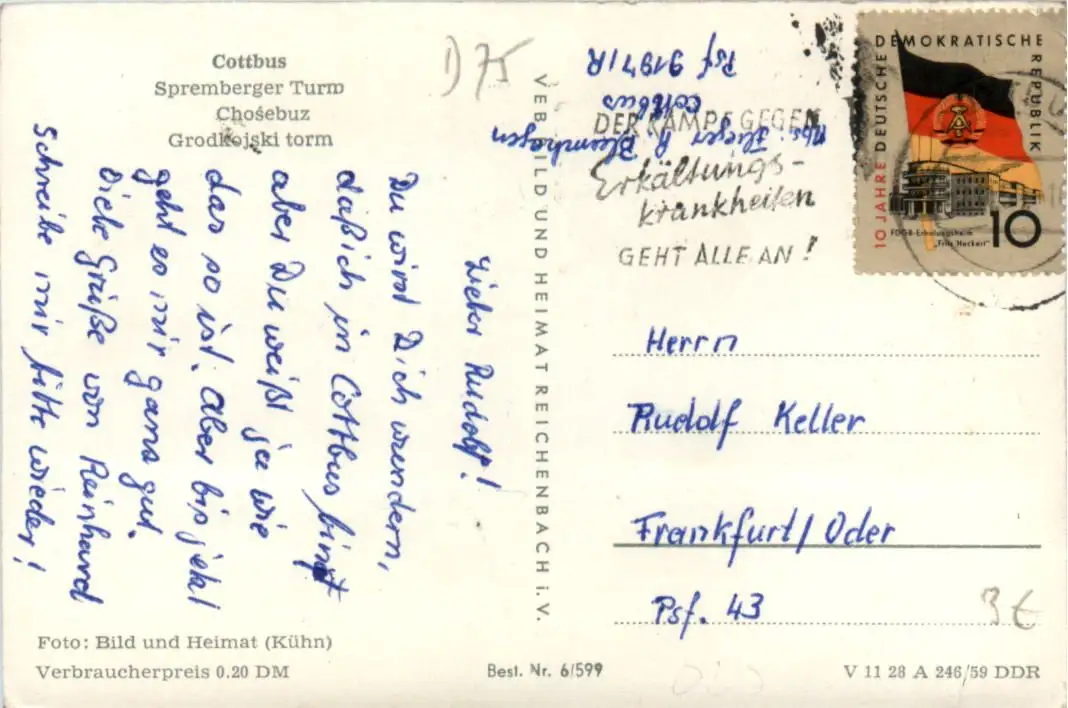 Cottbus
Spremberger Turm
Chośebuz
Grodkojski torm
D 75
Lieber Rudolf!
Du wirst Dich wundern,
daß ich in Cottbus bin
aber Du weißt ja wie
das so ist. Aber bis jetzt
geht es mir ganz gut.
Viele Grüße von Reinhard
Schreibe mir bitte wieder!
Foto: Bild und Heimat (Kühn)
Verbraucherpreis 0.20 DM
VEB BILD UND HEIMAT REICHENBACH i. V.
Best. Nr. 6/599
Abs: Flieger R. Blumhagen
Cottbus
Psf 9197/R
DER KAMPF GEGEN
Erkältungs-
krankheiten
GEHT ALLE AN!
10 JAHRE DEUTSCHE DEMOKRATISCHE REPUBLIK
FDGB-Erholungsheim
"Fritz Heckert"
10
Herrn
Rudolf Keller
Frankfurt/Oder
Psf. 43
3 €
V 11 28 A 246/59 DDR